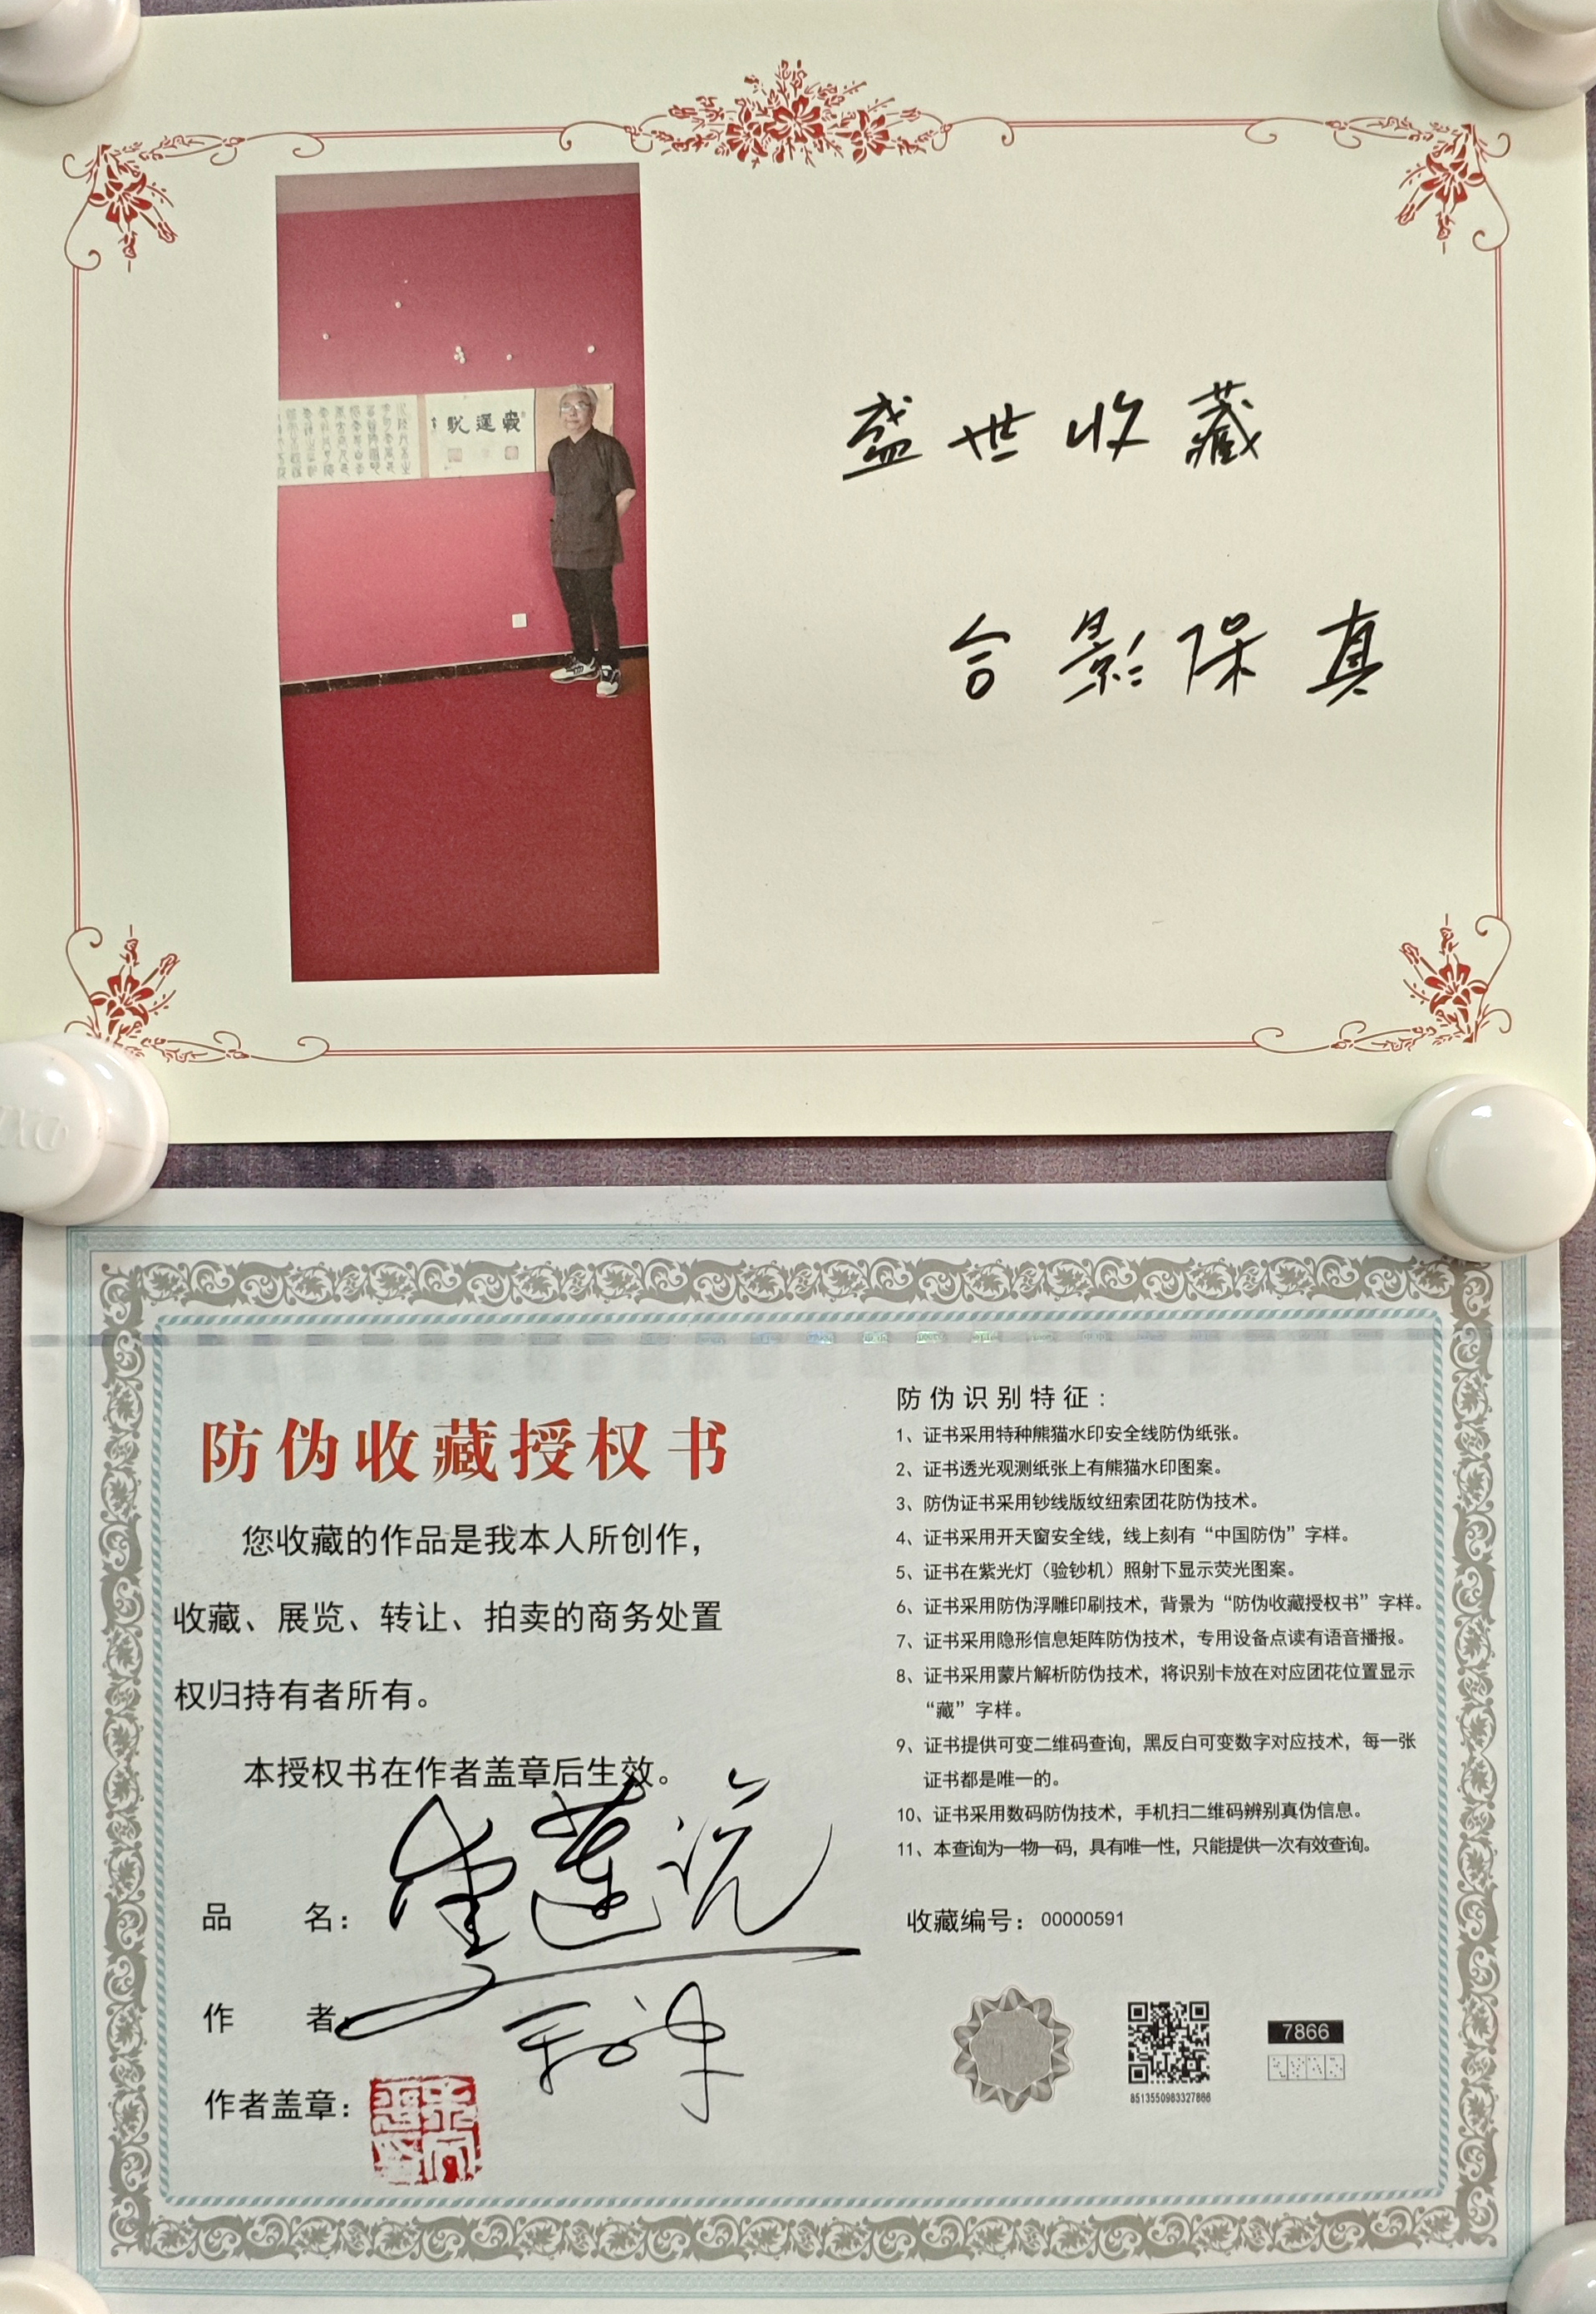 盛世收藏
合影保真
防伪收藏授权书
您收藏的作品是我本人所创作，
收藏、展览、转让、拍卖的商务处置
权归持有者所有。
本授权书在作者盖章后生效。
品 名：爱莲说
作 者
作者盖章：
防伪识别特征：
1、证书采用特种熊猫水印安全线防伪纸张。
2、证书透光观测纸张上有熊猫水印图案。
3、防伪证书采用钞线版纹纽索团花防伪技术。
4、证书采用开天窗安全线，线上刻有“中国防伪”字样。
5、证书在紫光灯（验钞机）照射下显示荧光图案。
6、证书采用防伪浮雕印刷技术，背景为“防伪收藏授权书”字样。
7、证书采用隐形信息矩阵防伪技术，专用设备点读有语音播报。
8、证书采用蒙片解析防伪技术，将识别卡放在对应团花位置显示
“藏”字样。
9、证书提供可变二维码查询，黑反白可变数字对应技术，每一张
证书都是唯一的。
10、证书采用数码防伪技术，手机扫二维码辨别真伪信息。
11、本查询为一物一码，具有唯一性，只能提供一次有效查询。
收藏编号：00000591
7866
8513550983327866